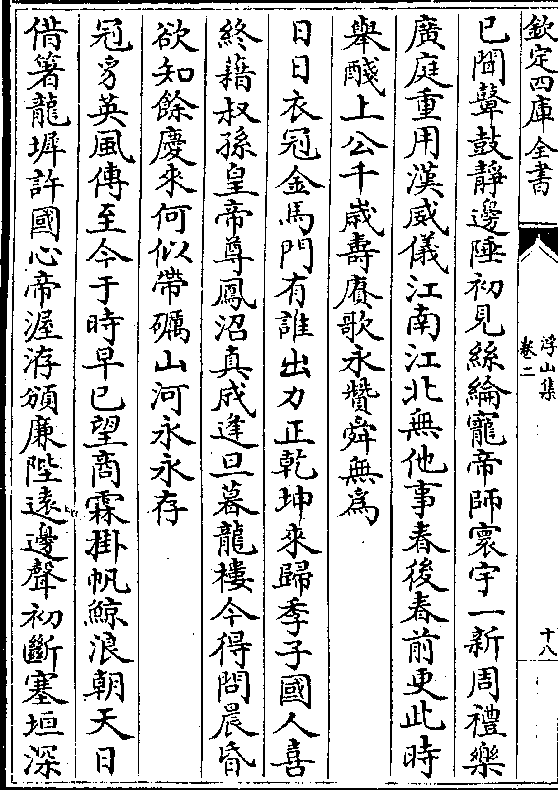 欽定四庫全書
浮山集
卷二
十八
已聞鼙鼓靜邊陲初見絲綸寵帝師寰宇一新周禮樂
廣庭重用漢威儀江南江北無他事春後春前更此時
舉醆上公千歲壽賡歌永贊舜無為
日日衣冠金馬門有誰出力正乾坤來歸季子國人喜
終藉叔孫皇帝尊鳳沼真成逢旦暮龍樓今得問晨昏
欲知餘慶來何似帶礪山河永永存
冠豸英風傳至今于時早已望商霖掛帆鯨浪朝天日
借箸龍墀許國心帝渥洊頒廉陛遠邊聲初斷塞垣深